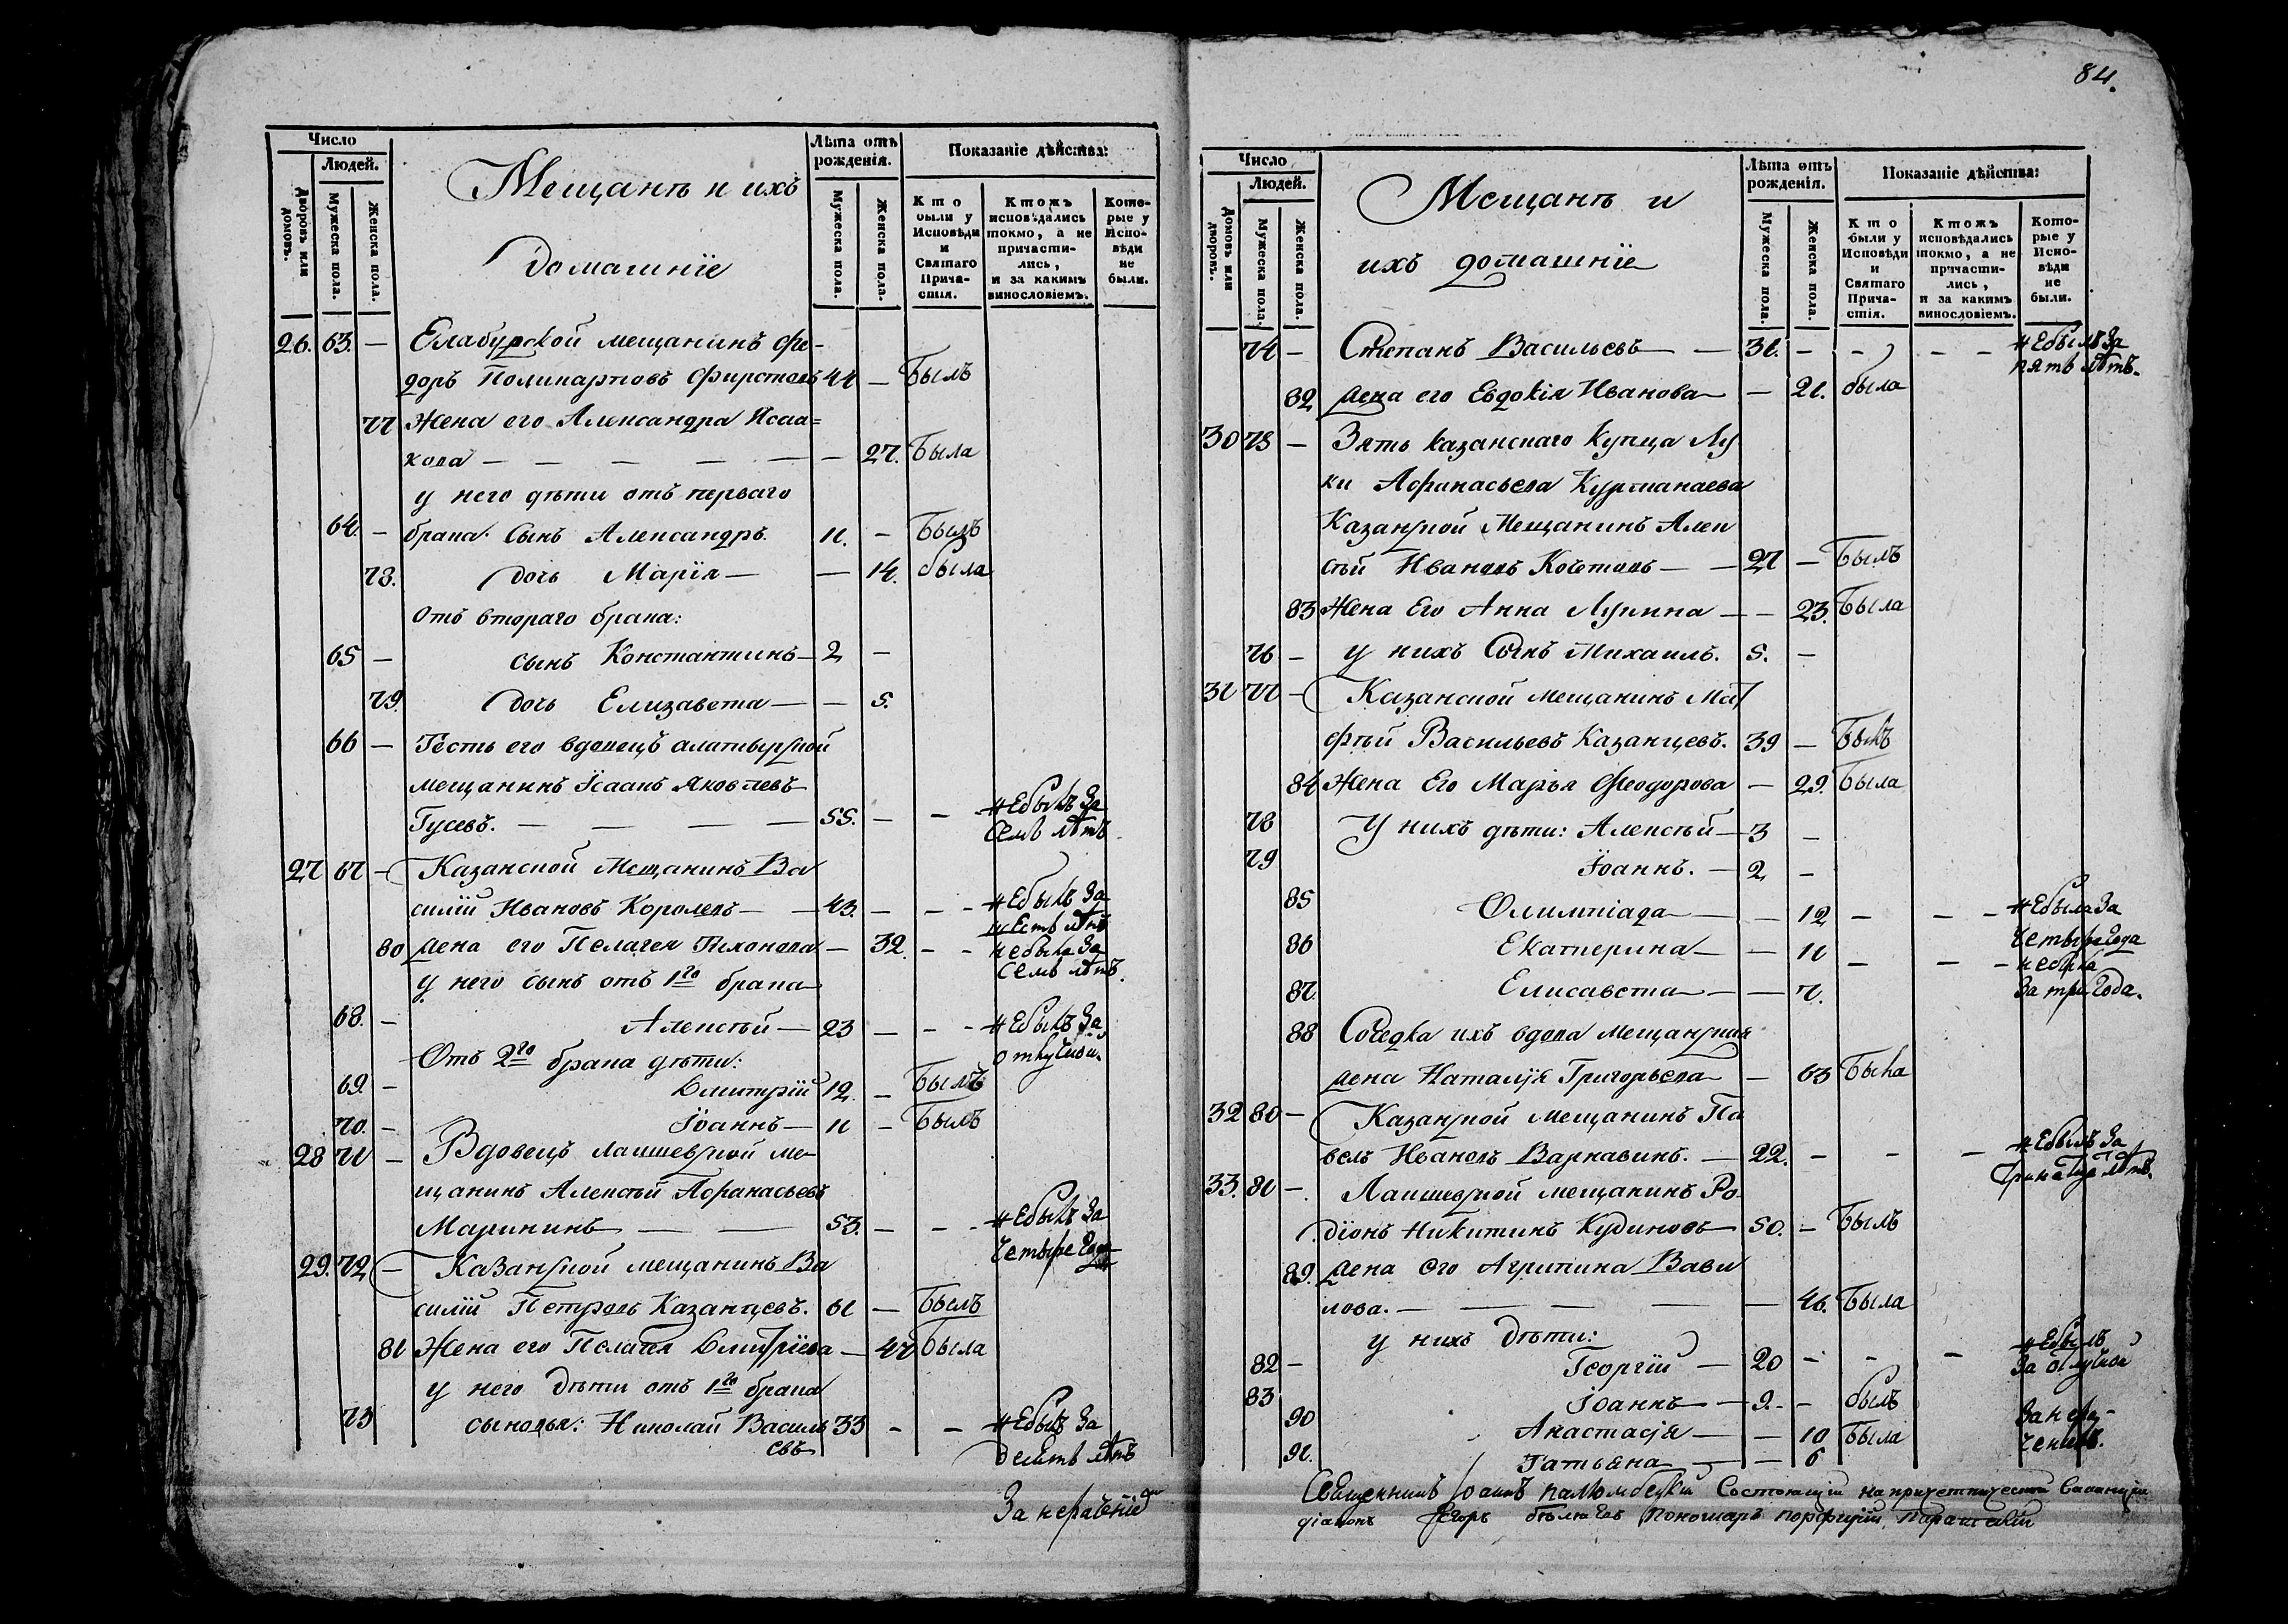 84.
Число
Людей.
Дворовъ или домовъ.
Мужеска пола.
Женска пола.
Мещанъ и ихъ
домашнїе
Лѣта отъ рожденія.
Мужеска пола.
Женска пола.
Показаніе дѣйства:
Кто были у Исповѣди и Святаго Прича-стія.
Ктожъ исповѣдались токмо, а не причасти-лись, и за какимъ винословіемъ.
Кото-рые у Испо-вѣди не были.
26. 63. — Елабужской мещанинъ Фе-
доръ Поликарповъ 44 — Былъ
77 Жена его Александра Исаа=
кова — — — — — — 27. Была
у него дѣти отъ перваго
64. — брака: Сынъ Александръ. 11. — Былъ
78. дочь Марїя — — 14. была
Отъ втораго брака:
65 — сынъ Константинъ — 2 —
79. дочь Елизавета — — 5.
66 — Тесть его вдовецъ алатырской
мещанинъ Їсаакъ Яковлевъ
Гусевъ. — — — — 55. — — — небылъ за
семь лѣтъ
27 67 — Казанской Мещанинъ Ва
силїй Ивановъ Королевъ — — 43. — — — небылъ за
шесть лѣтъ
80 жена его Пелагея Тихонова — 32. — — небыла за
семь лѣтъ.
у него сынъ отъ 1го брака
68. — Алексѣй — 23 — — — небылъ за
отлучкой.
Отъ 2го брака дѣти:
69. — Дмитрїй 12. — Былъ
70. — Їоаннъ — 11 — Былъ
28 71 — Вдовецъ лаишевской ме-
щанинъ Алексѣй Афанасьевъ
Марининъ — — 53. — — — небылъ за
четыре года
29. 72 — Казанской мещанинъ Ва
силїй Петровъ Казанцевъ. 61 — Былъ
81 Жена его Пелагея Дмитрїева — 47 Была
у него дѣти отъ 1го брака
73 сыновья: Николай Василь 33 — — небылъ за
евъ десять лѣтъ
За нераденїе
Число
Людей.
Домовъ или дворовъ.
Мужеска пола.
Женска пола.
Мещанъ и
ихъ домашнїе
Лѣта отъ рожденія.
Мужеска пола.
Женска пола.
Показаніе дѣйства:
Кто были у Исповѣди и Святаго Прича-стія.
Ктожъ исповѣдались токмо, а не причасти-лись, и за какимъ винословіемъ.
Кото-рые у Испо-вѣди не были.
74 — Степанъ Васильевъ — — 31. — — — — небылъ за
пять лѣтъ.
82 жена его Евдокїя Иванова — — 21. была
30 75 — Зять казанскаго Купца Лу
ки Афанасьева Курманаева
Казанской Мещанинъ Алек
сѣй Ивановъ Кочетовъ — — 27 — Былъ
83 Жена Его Анна Лукина — — 23. Была
76 — у нихъ Сынъ Михаилъ. 5. —
31 77 — Казанской мещанинъ Мат
фѣй Васильевъ Казанцевъ. 39 — Былъ
84 Жена Его Марья Феодорова — 29. Была
78 У нихъ дѣти: Алексѣй — 3 —
79 Їоаннъ. — 2 —
85 Олимпїада — — 12 — — — небыла за
четыре года
86 Екатерина — — 11 — — — небыла
за три года.
87. Елисавета — — 7.
88 Соседка ихъ вдова мещанская
жена Наталїя Григорьева — — 63 Была
32 80 — Казанской мещанинъ Па
велъ Ивановъ Варнавинъ. — 22. — — — небылъ за
лѣтъ.
33. 81 — Лаишевской мещанинъ Ро
дїонъ Никитинъ Кудиновъ — 50. — Былъ
89. жена его Агрипина Вави
лова. — — — — 46. Была
у нихъ дѣти:
82 — Георгїй — 20 — — — небылъ
за отлучкой
83 Їоаннъ — 9. — былъ
90 Анастасїя — — 10 Была
91. Татьяна — — 6
Священникъ Їоаннъ Состоящїй
дїаконъ Егоръ Пономарь Порфирїй